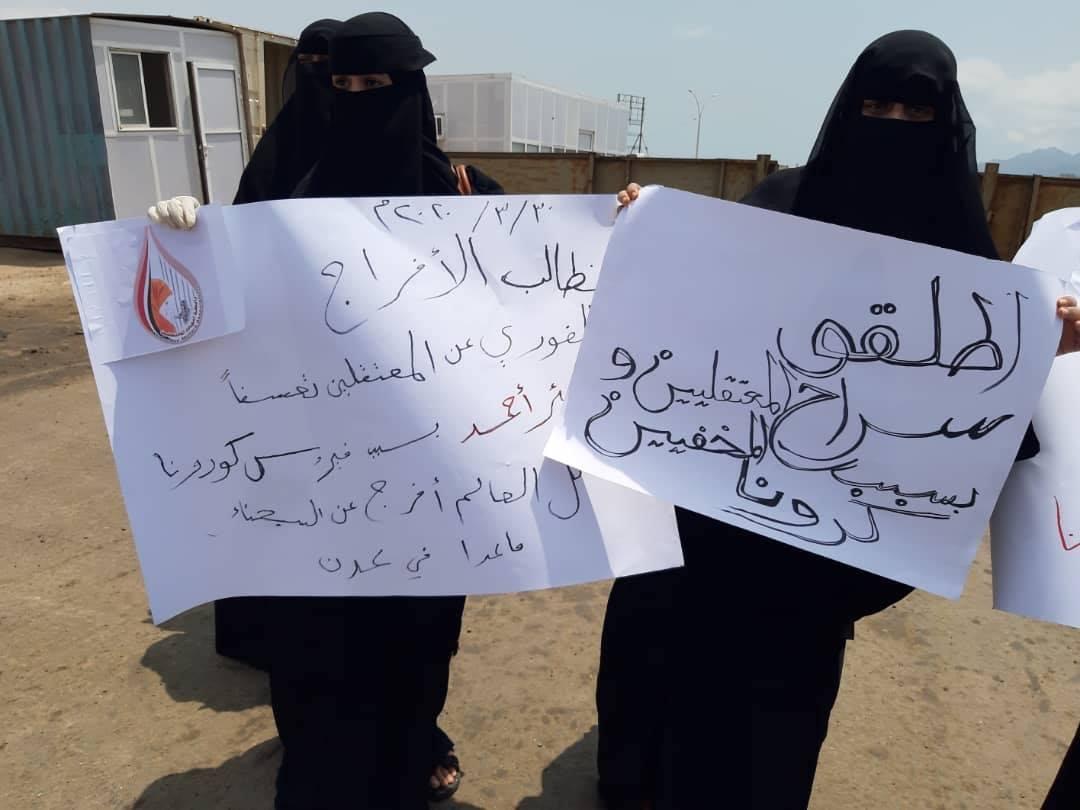 ٢٠٢٠/٣/٣٠م
نطالب الأفراج
الفوري عن المعتقلين تعسفاً
أحمد بسبب فيروس كورونا
كل العالم أفرج عن السجناء
ماعدا في عدن
اطلقو
سراح المعتقلين و
المخفيين
بسبب
كرونا